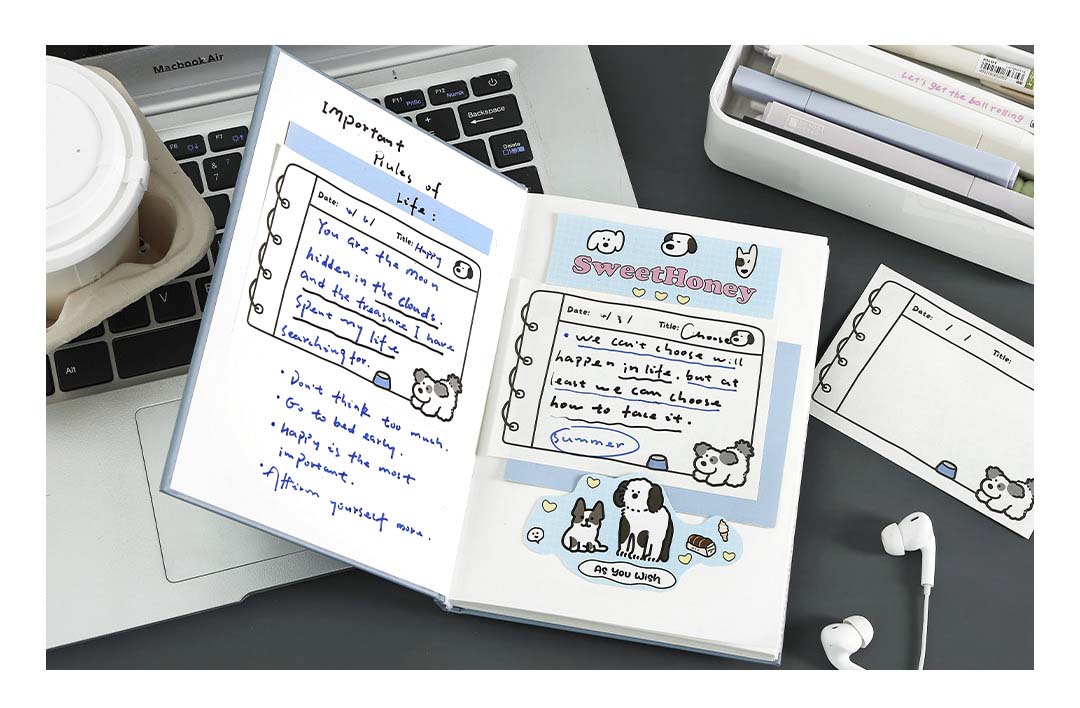 Macbook Air
F6
F7
&
7
F11
Prtsc
F12
Numlk
+
Backspace
Delete
V
B
Alt
Important
Rules of
Life:
Date: 4/ 6/
Title: Happy
You are the moon
hidden in the clouds.
and the treasure I have
spent my life
searching for.
• Don't think too much.
• Go to bed early.
• Happy is the most
important.
• Affirm yourself more.
SweetHoney
Date: 4/ 3/
Title: Choose
• we can't choose will
happen in life. but at
least we can choose
how to face it.
Summer
As You Wish
Let's get the ball rolling
Date: / /
Title: